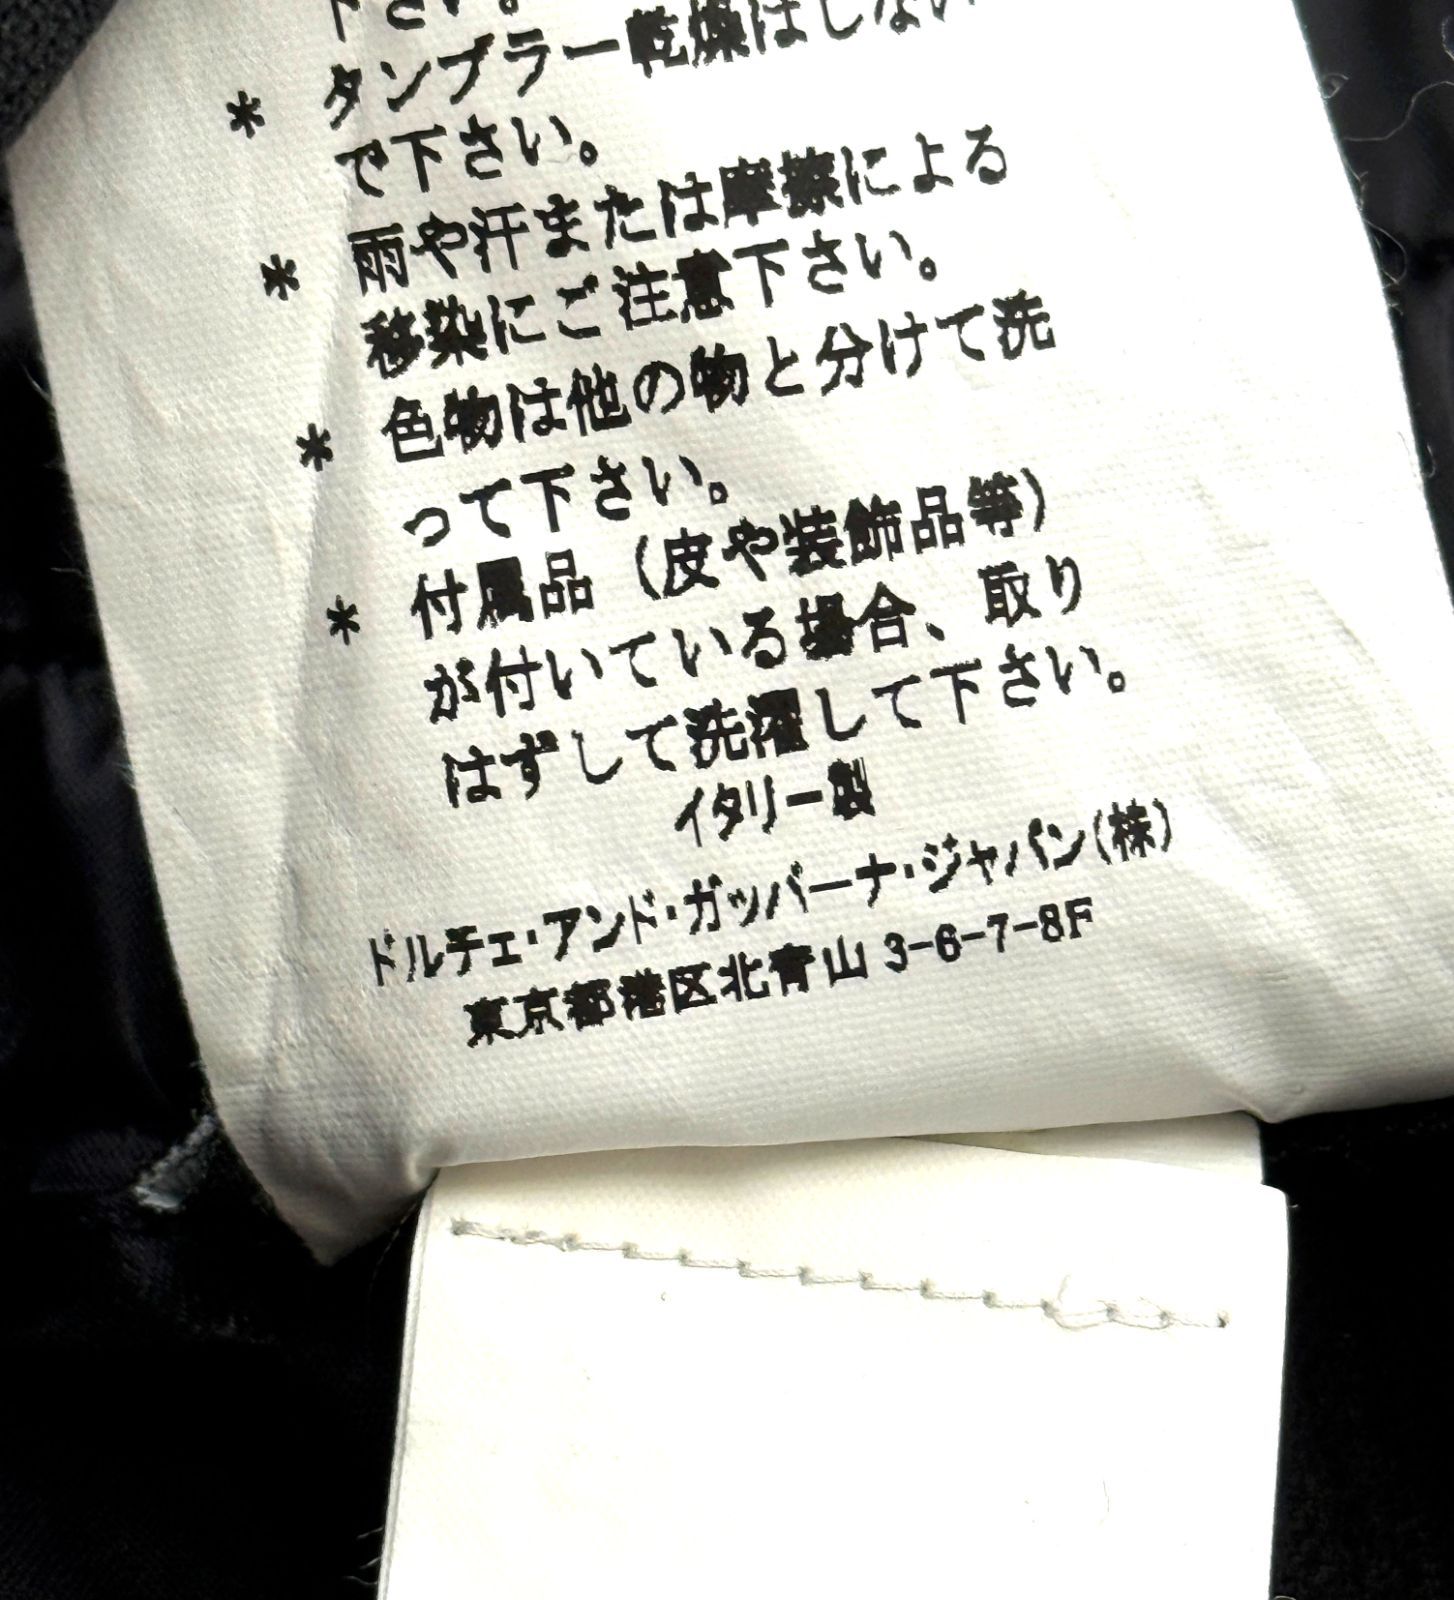 下さい。
* タンブラー乾燥はしない
で下さい。
* 雨や汗または摩擦による
移染にご注意下さい。
* 色物は他の物と分けて洗
って下さい。
* 付属品（皮や装飾品等）
が付いている場合、取り
はずして洗濯して下さい。
イタリー製
ドルチェ・アンド・ガッバーナ・ジャパン(株)
東京都港区北青山 3-6-7-8F